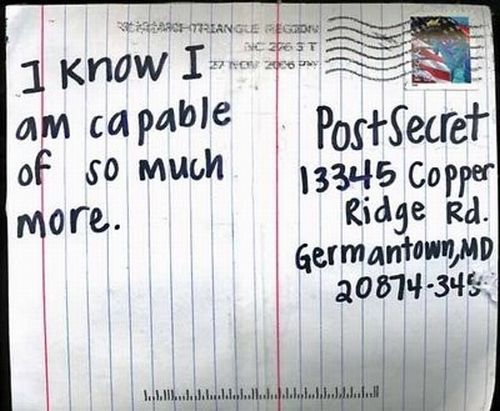 RESEARCH TRIANGLE REGION
27 NOV 2006 PM
I know I
am capable
of so much
more.
PostSecret
13345 Copper
Ridge Rd.
Germantown, MD
20874-345